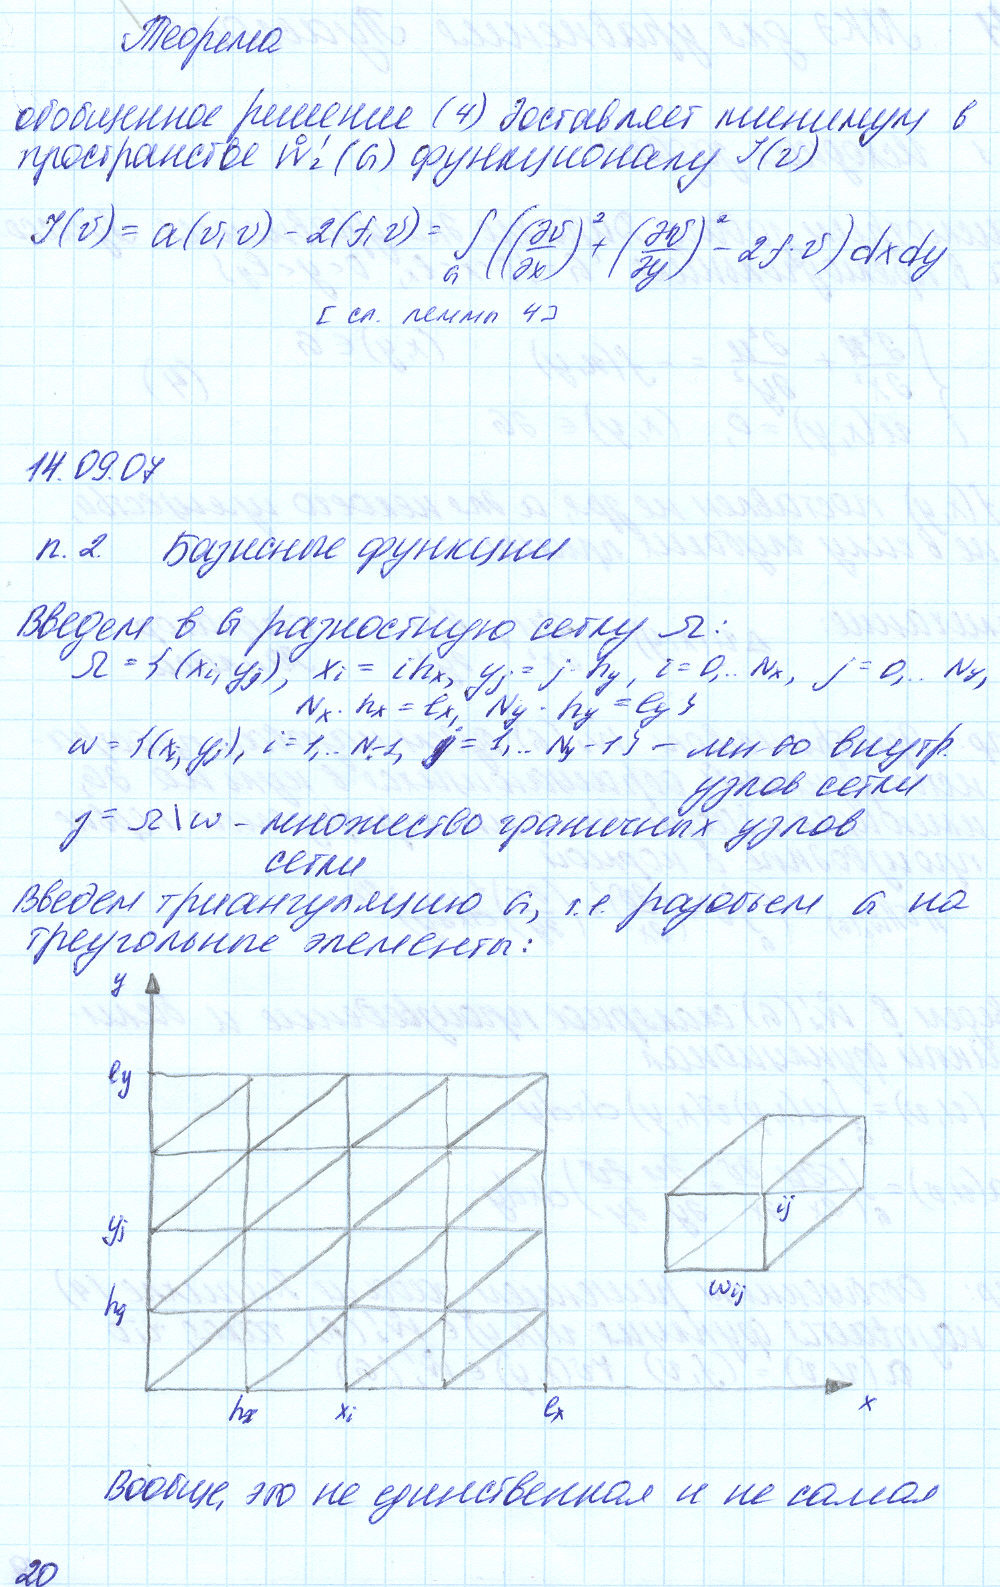 Теорема
обобщенное решение (4) доставляет минимум в
пространстве W̊₂¹(G) функционалу J(v)
J(v) = a(v,v) - 2(f,v) = ∫_G ((∂v/∂x)² + (∂v/∂y)² - 2f·v) dxdy
[сл. леммы 4]
14.09.07
п. 2. Базисные функции
Введем в G разностную сетку Ω:
Ω = {(xi, yj), xi = ihx, yj = j·hy, i = 0,.. Nx, j = 0,.. Ny,
Nx·hx = lx, Ny·hy = ly}
ω = {(xi, yj), i = 1,.. N-1, j = 1,.. Ny-1} - мн-во внутр.
узлов сетки
γ = Ω\ω - множество граничных узлов
сетки
Введем триангуляцию G, т.е. разобьем G на
треугольные элементы:
y
ly
yj
hy
hx xi lx x
ij
ωij
Вообще, это не единственная и не самая
20